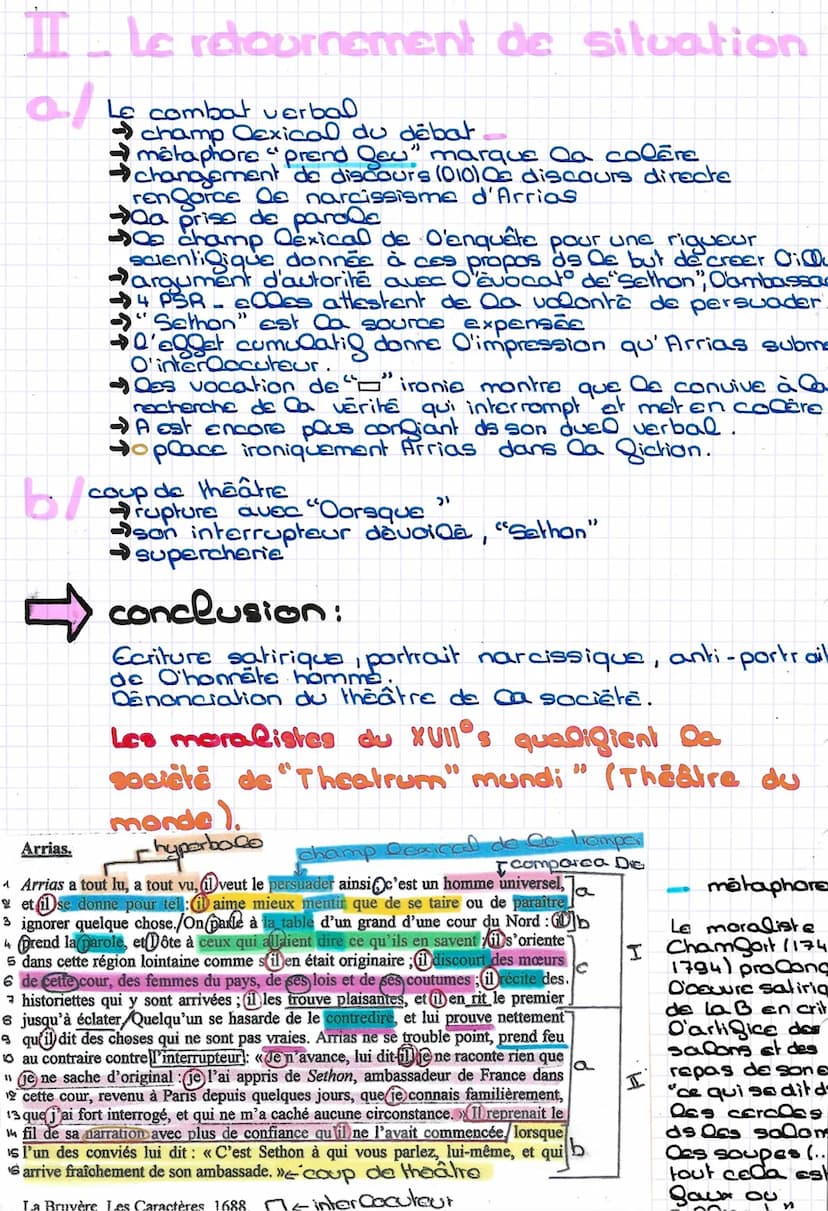 II - Le retournement de situation
a/ Le combat verbal
→ champ lexical du débat
→ métaphore "prend feu" marque la colère
→ changement de discours (DID) le discours directe
renforce le narcissisme d'Arrias
→ la prise de parole
→ le champ léxical de l'enquête pour une rigueur
scientifique donnée à ces propos ds le but de créer l'illu
→ argument d'autorité avec l'évocat° de "Sethon", l'ambassa
→ 4 PSR - elles attestent de la volonté de persuader
→ "Sethon" est la source expensée
→ l'effet cumulatif donne l'impression qu'Arrias subme
l'interlocuteur.
→ les vocation de "▭" ironie montre que le convive à la
recherche de la vérité qui interrompt et met en colère
→ A est encore plus confiant ds son duel verbal.
→ place ironiquement Arrias dans la fiction.
b/ coup de théâtre
→ rupture avec "lorsque"
→ son interrupteur dévoilé, "Sethon"
→ supercherie
⇨ conclusion :
Ecriture satirique, portrait narcissique, anti-portrait
de l'honnête homme.
Dénonciation du théâtre de la société.
Les moralistes du XVII°s qualifient la
société de "Theatrum" mundi" (Théâtre du
monde).
Arrias.
hyperbole
champ lexical de la tromper
comparea
1 Arrias a tout lu, a tout vu, il veut le persuader ainsi ; c'est un homme universel,
2 et il se donne pour tel : il aime mieux mentir que de se taire ou de paraître
3 ignorer quelque chose./On parle à la table d'un grand d'une cour du Nord : il
4 prend la parole, et l'ôte à ceux qui allaient dire ce qu'ils en savent / il s'oriente
5 dans cette région lointaine comme s'il en était originaire ; il discourt des mœurs
6 de cette cour, des femmes du pays, de ses lois et de ses coutumes ; il récite des
7 historiettes qui y sont arrivées ; il les trouve plaisantes, et il en rit le premier
8 jusqu'à éclater./Quelqu'un se hasarde de le contredire, et lui prouve nettement
9 qu'il dit des choses qui ne sont pas vraies. Arrias ne se trouble point, prend feu
10 au contraire contre l'interrupteur : « Je n'avance, lui dit-il, je ne raconte rien que
11 je ne sache d'original : je l'ai appris de Sethon, ambassadeur de France dans
12 cette cour, revenu à Paris depuis quelques jours, que je connais familièrement,
13 que j'ai fort interrogé, et qui ne m'a caché aucune circonstance. » Il reprenait le
14 fil de sa narration avec plus de confiance qu'il ne l'avait commencée, lorsque
15 l'un des conviés lui dit : « C'est Sethon à qui vous parlez, lui-même, et qui
16 arrive fraîchement de son ambassade. » ← coup de théâtre
La Bruyère, Les Caractères, 1688.
▭ ← interlocuteur
a
b
c
I
a
b
II
métaphore
Le moraliste
Chamfort (174
1794) prolong
l'oeuvre satiriq
de la B en crit
l'artifice des
salons et des
repas de son e
"ce qui se dit d
les cercles
ds les salon
les soupes (..
tout cela est
faux ou